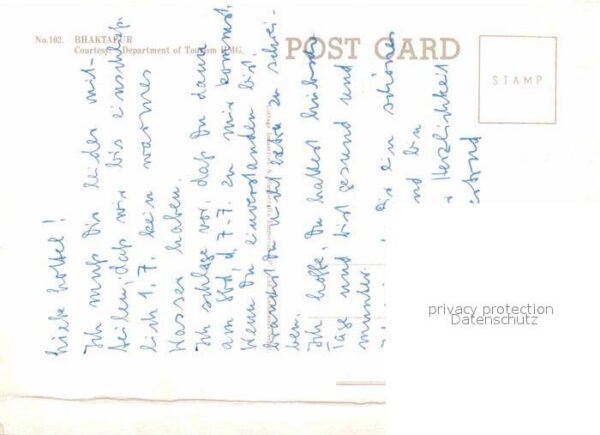 No.102. BHAKTAPUR
Courtesy: Department of Tourism HMG.
POST CARD
STAMP
Ich muß Dir leider mit-
teilen, daß wir bis einschließ-
lich 1.7. kein warmes
Wasser haben.
Ich schlage vor, daß Du dann
am 7.7. zu mir kommst.
Wenn Du einverstanden bist
brauchst Du nicht extra zu schrei-
ben.
Ich hoffe, Du hattest hübsche
Tage und bist gesund und
munter.
Dir ein schönes
und bin
Herzlichkeit
privacy protection
Datenschutz